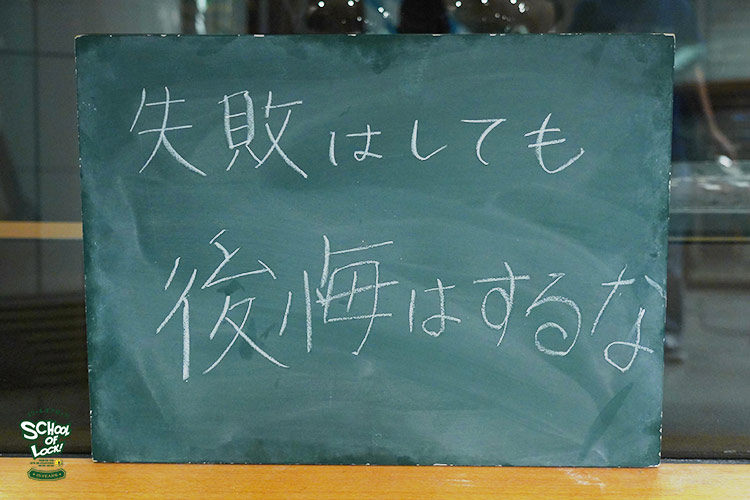 失敗はしても
後悔はするな
SCHOOL
OF
LOCK!